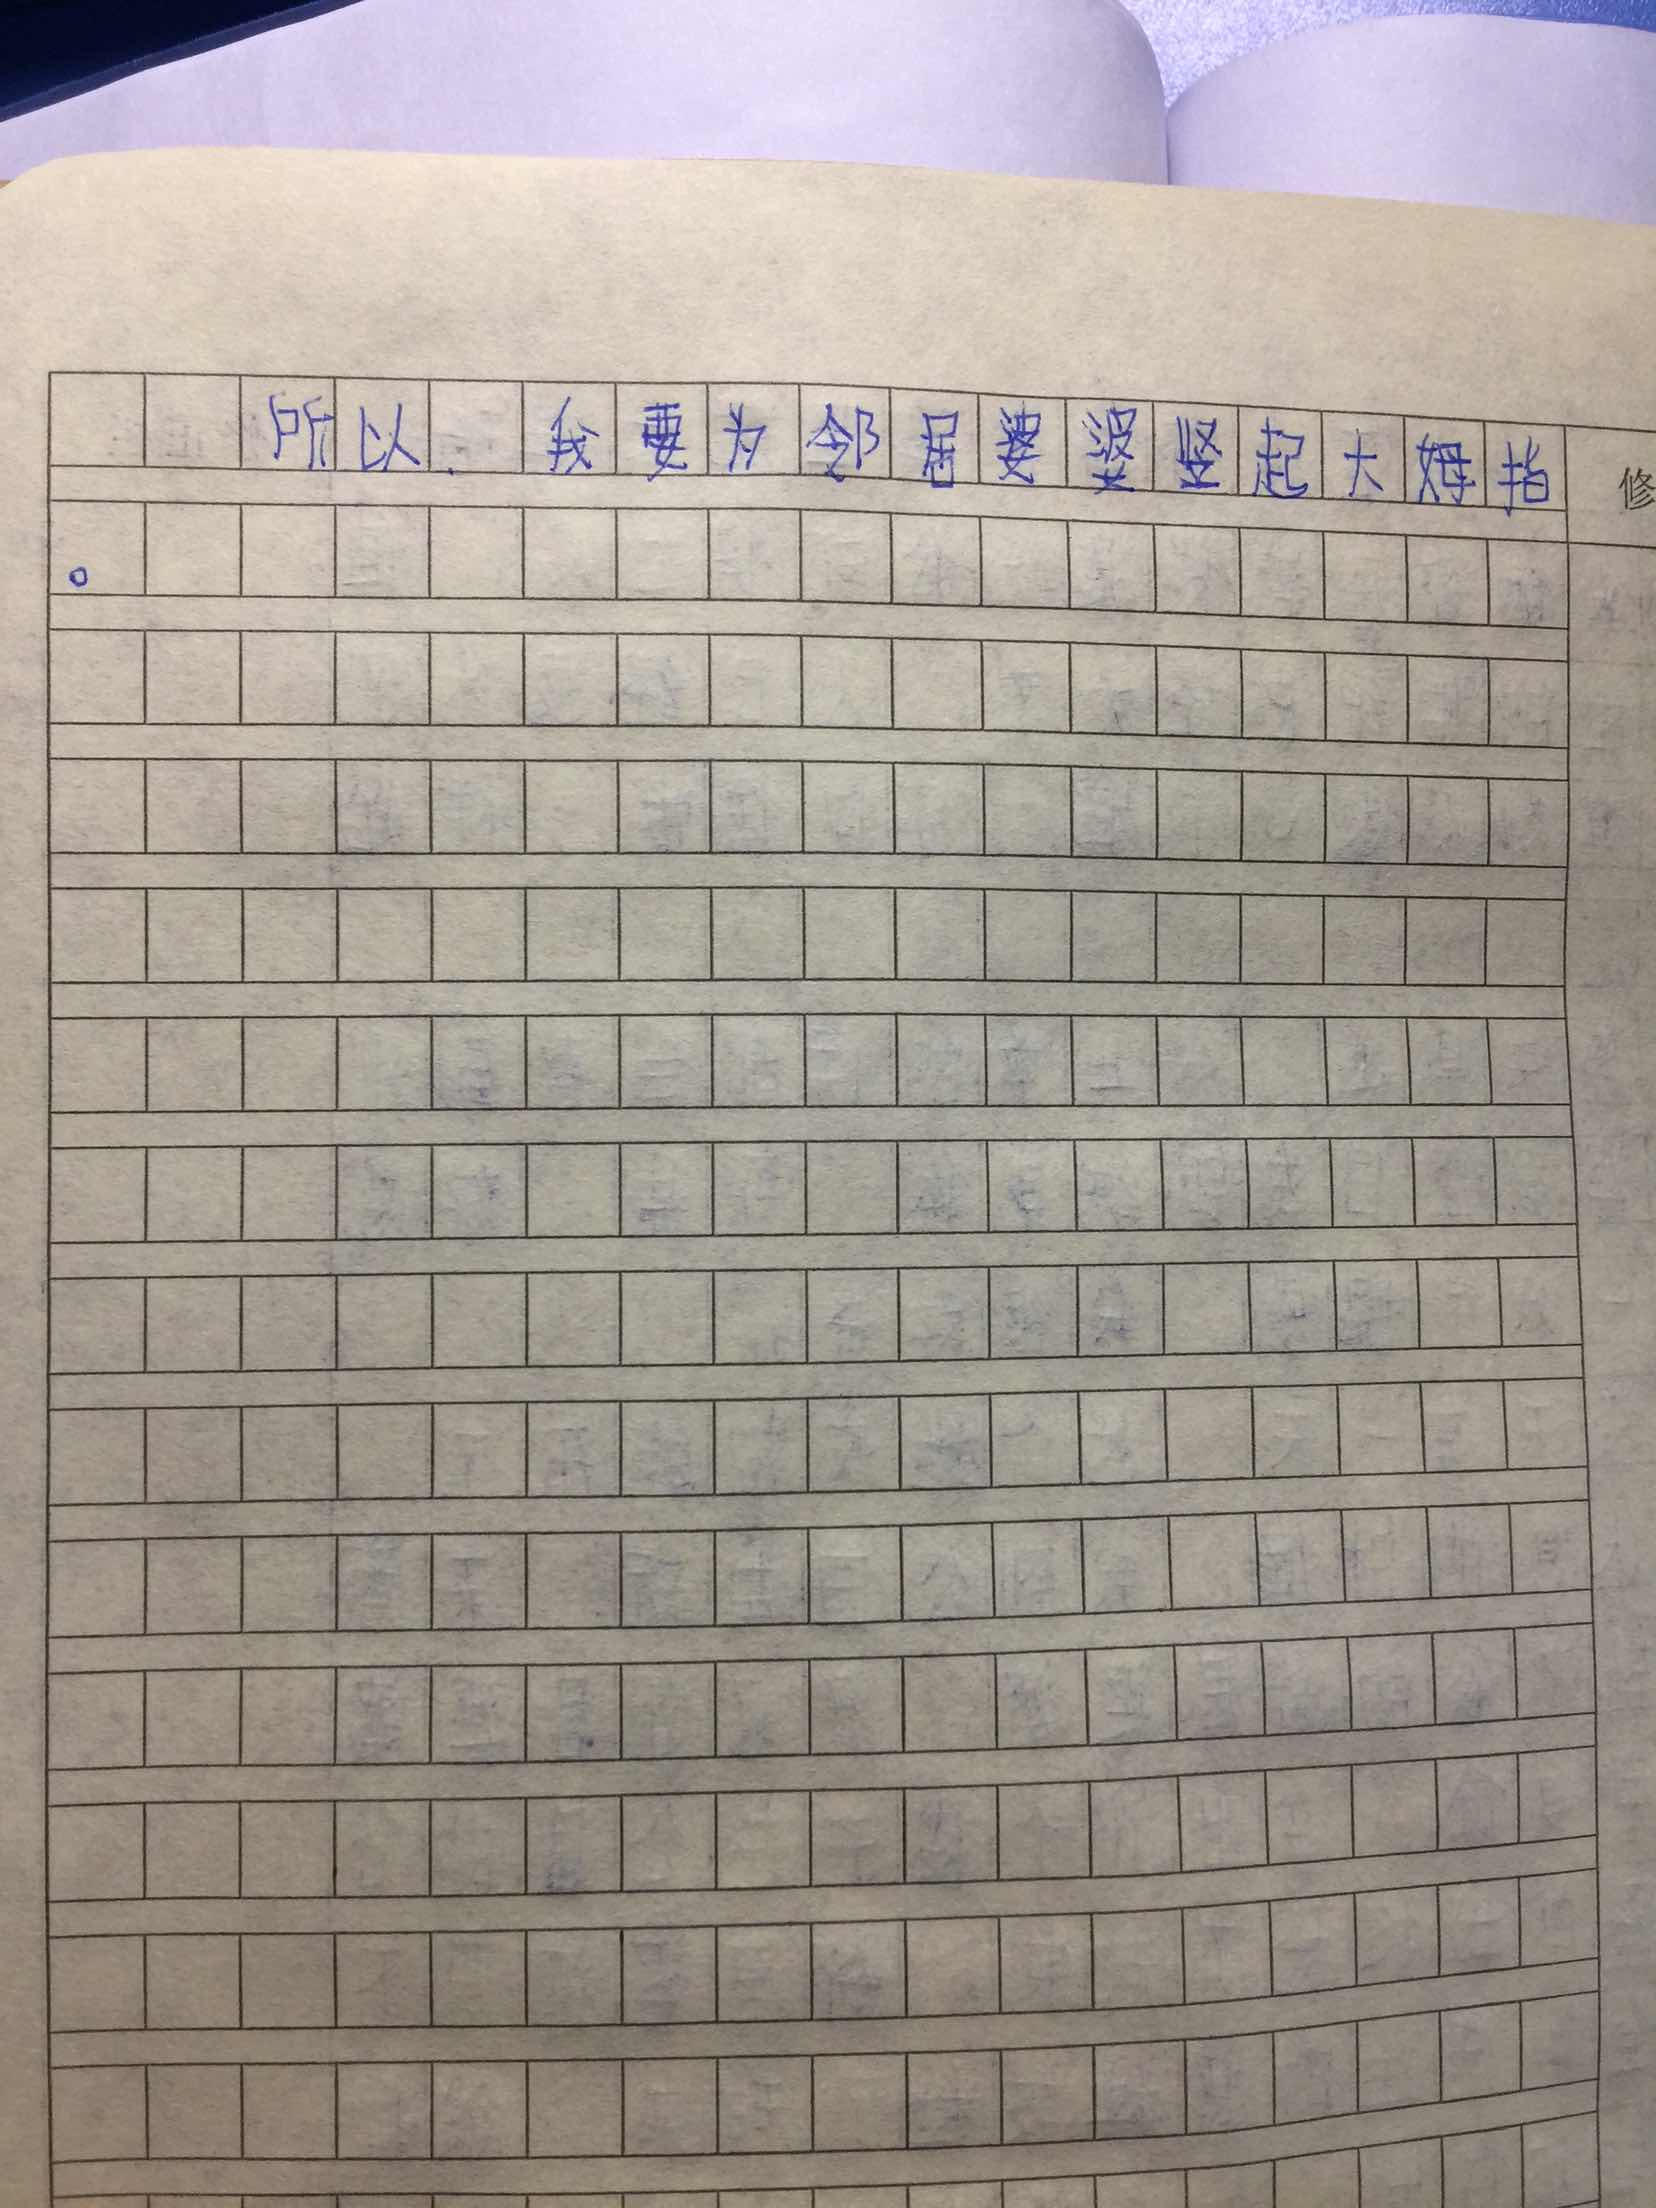 所以,我要为邻居婆婆竖起大姆指 修
。